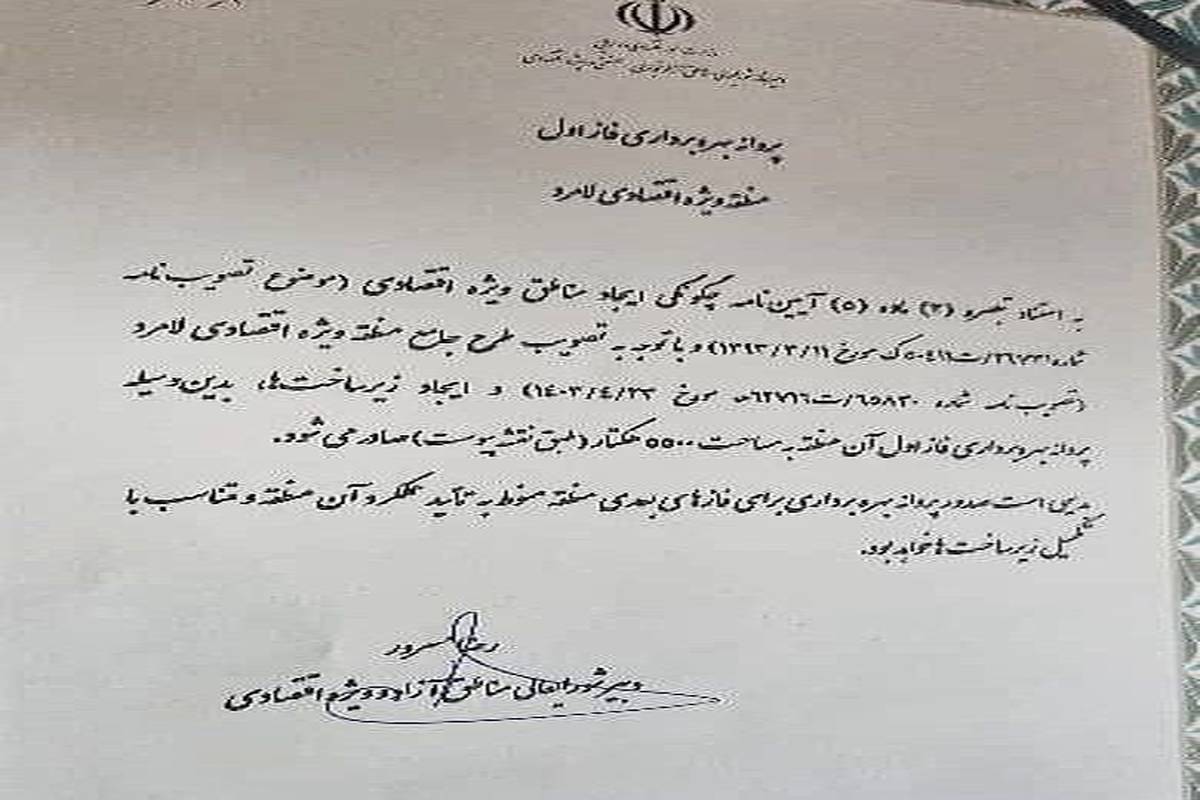 پروانه بهره‌برداری فاز اول
منطقه ویژه اقتصادی لامرد
به استناد تبصره (۳) ماده (۵) آیین‌نامه چگونگی ایجاد مناطق ویژه اقتصادی (موضوع تصویب‌نامه
شماره ک مورخ ۱۳۹۳/۳/۱۱) و با توجه به تصویب طرح جامع منطقه ویژه اقتصادی لامرد
(تصویب‌نامه شماره ۶۵۸۳۰/ت۶۲۷۱۶ه مورخ ۱۴۰۳/۴/۲۳) و ایجاد زیرساخت‌ها، بدین‌وسیله
پروانه بهره‌برداری فاز اول آن منطقه به مساحت ۵۵۰۰ هکتار (طبق نقشه پیوست) صادر می شود.
بدیهی است صدور پروانه بهره‌برداری برای فازهای بعدی منطقه منوط به تأیید عملکرد آن منطقه و متناسب با
تکمیل زیرساخت‌ها خواهد بود.
رضا مسرور
دبیر شورایعالی مناطق آزاد و ویژه اقتصادی